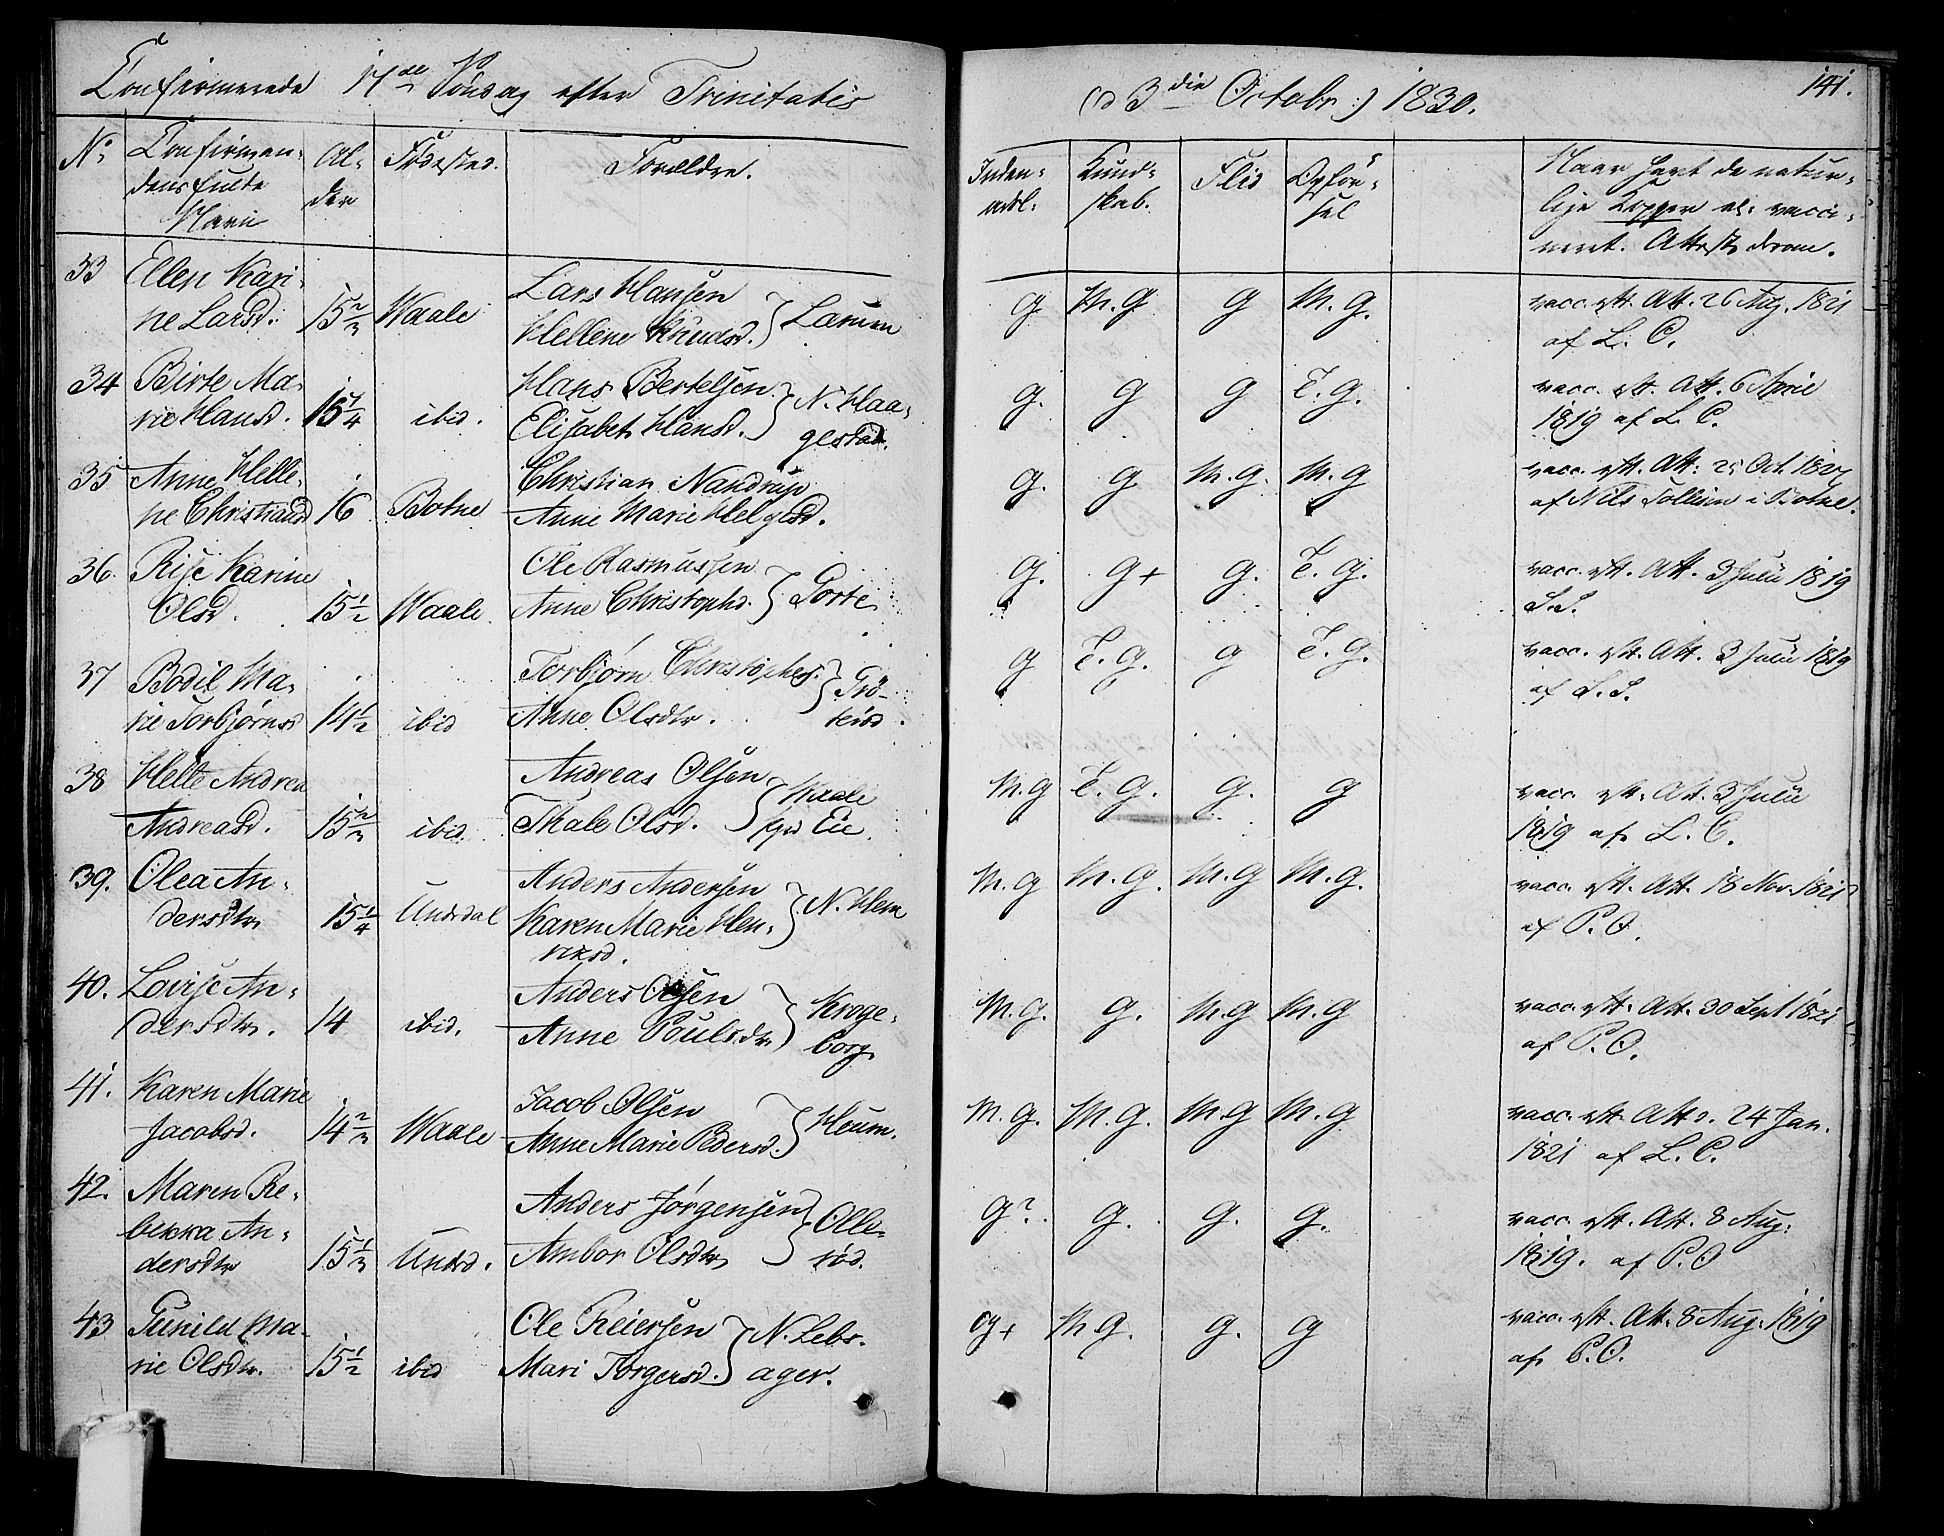 Confirmerede 17de Søndag efter Trinitatis
(d 3die Octobr:) 1830.
141.
No
Confirman-
dens fulde
Navn
Al-
der
Fødested.
Forældre.
Inden-
adl.
Kund-
skab.
Flid
Opfør-
sel
Naar havt de natur-
lige Kopper el: vacci-
neret. Attest derom.
33 Ellen Kari-
ne Larsd. 15 2/3 Waale
Lars Hansen
Hellene Knudsd. } Lauven
g M. g g M. g.
vacc. Att. 26 Aug. 1821
af L. C.
34 Birte Ma-
rie Hansd. 15 1/4 ibid.
Hans Bertelsen
Elisabet Hansd. } N. Haa-
gestad.
g. g g T. g.
vacc. Att. 6 April
1819 af L. C.
35 Anne Helle-
ne Christiansd 16 Botne
Christian Nandrup
Anne Marie Helgesd.
g. g M. g. M. g
vacc. Att: 25 Oct. 1827
af Nils Sollien i Botne.
36. Rise Karine
Olsd. 15 1/2 Waale.
Ole Rasmussen
Anne Christophd. } Gorte
g. g+ g. T. g.
vacc. Att. 3 Juli 1819
S.S.
37 Bodil Ma-
rie Torbjørnsd 14 1/2 ibid
Torbjørn Christophers.
Anne Olsdtr. }
g T. g. g T. g.
vacc. Att. 3 Juli 1819
af S. S.
38 Helte Andrea
Andreasd. 15 2/3 ibid.
Andreas Olsen
Thale Olsd. } Waale
Eie.
M. g T. g. g. g
vacc. Att. 3 Juli
1819 af L. C.
39. Olea An-
dersdtr 15 1/4 Undrdal
Anders Andersen
Karen Marie Hen-
riksd. } N. Hem
M. g M. g. M. g M. g.
vacc. Att. 18 Nov. 1821
af P. O.
40. Lovise An-
dersdtr. 14 ibid.
Anders Olsen
Anne Poulsdtr } Kroge-
borg
M. g. g. M. g M. g
vacc. Att. 30 Sept 1821
af P. O.
41. Karen Marie
Jacobsd. 14 2/3 Waale
Jacob Olsen
Anne Marie Pedersd. } Heum.
M. g. M. g. M. g M. g
vacc. Att. 24 Jan.
1821 af L. C.
42. Maren Re-
bekka An-
dersdtr 15 1/3 Undrd.
Anders Jørgensen
Ambor Olsdtr } Olle-
rød.
g? g. g. g.
vacc. Att. 8 Aug:
1819. af P. O
43 Gunild Ma-
rie Olsdtr. 15 1/2 ibid
Ole Reiersen
Mari Torgersd. } N. Lebs-
ager.
g+ M g. g. g
vacc. Att. 8 Aug. 1819
af P. O.